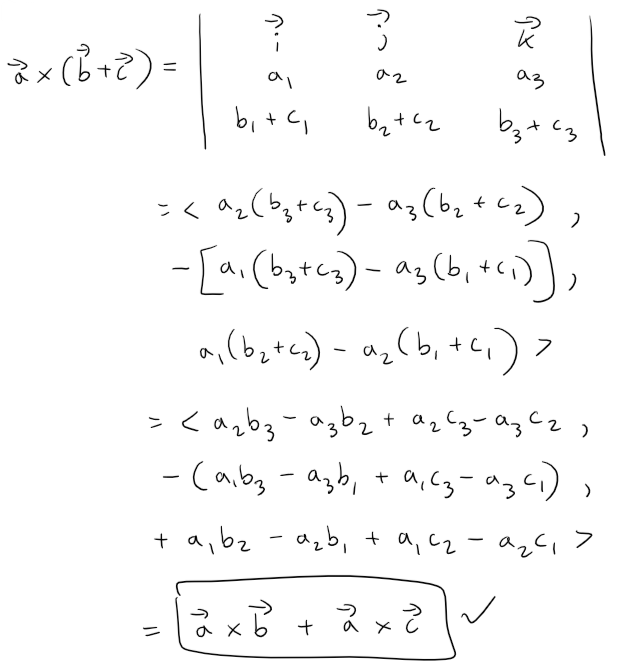 a⃗ × (b⃗ + c⃗) = | i⃗ j⃗ k⃗ |
| a₁ a₂ a₃ |
| b₁ + c₁ b₂ + c₂ b₃ + c₃ |
= < a₂(b₃+c₃) - a₃(b₂ + c₂) ,
- [a₁(b₃+c₃) - a₃(b₁+c₁)] ,
a₁(b₂+c₂) - a₂(b₁+c₁) >
= < a₂b₃ - a₃b₂ + a₂c₃ - a₃c₂ ,
- (a₁b₃ - a₃b₁ + a₁c₃ - a₃c₁) ,
+ a₁b₂ - a₂b₁ + a₁c₂ - a₂c₁ >
= a⃗ × b⃗ + a⃗ × c⃗ ✓